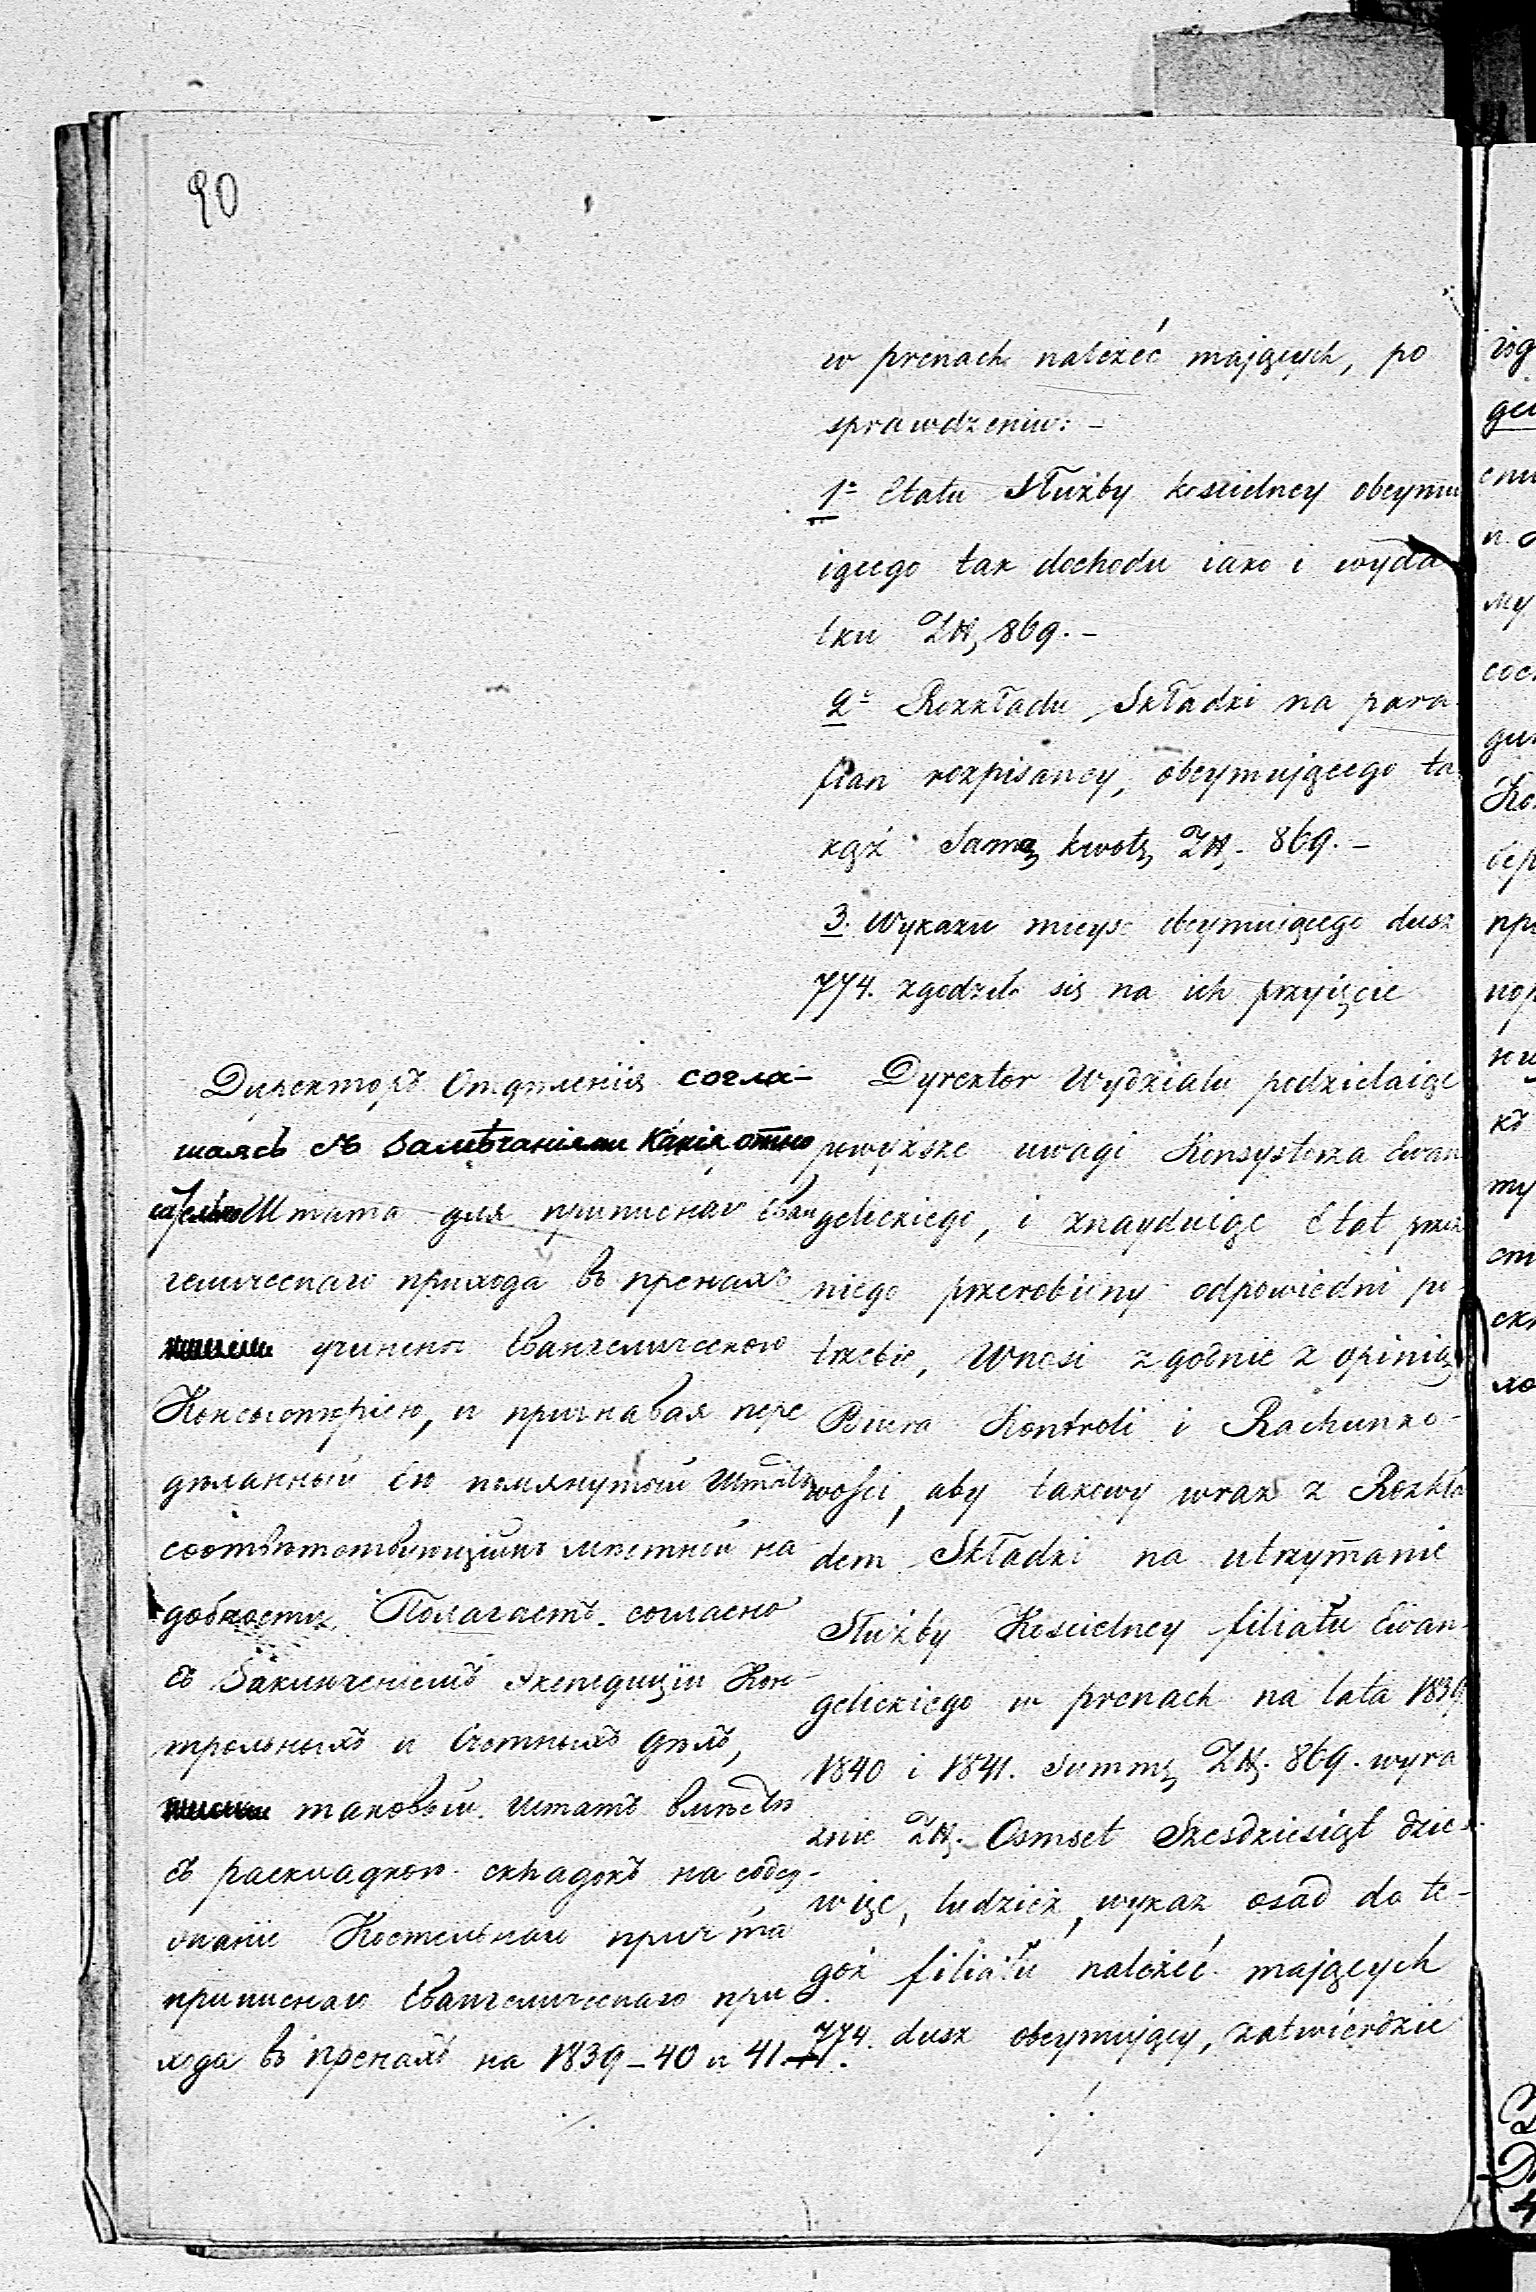 90
w prenach należéc mających, po
sprawdzeniu: –
1º Etatu Służby kościelney obeymu
iącego tak dochodu iako i wyda
tku Zł. 869. –
2º Rozkładu Składki na para
fian rozpisaney, obeymującego ta
kąż Samą kwotę Zł. 869. –
3. Wykazu mieysc obeymuiącego dusz
774. zgodził się na ich przyięcie
Директоръ Отдѣленія согла–
шаясь съ Замѣчаніями какія отно
сительно Штата для приписнаго Еван
гелическаго прихода въ пренахъ
учинены Евангелическою
Консысторіею, и признавая пере
дѣланный Ею помянутый Штатъ
соотвѣтствующимъ мѣстной на
добности, Полагаетъ согласно
съ Заключеніемъ Экспедиціи Кон–
трольныхъ и Счетныхъ дѣлъ,
таковый Штатъ вмѣстѣ
съ раскладкою складокъ на содер–
жаніе Костельнаго причта
приписнаго Евангелическаго при
хода въ пренахъ на 1839–40 и 41.
Dyrektor Wydziału podzielaiąc
powyższe uwagi Konsystorza Ewan
gelickiego, i znayduiąc Etat przez
niego przerobiony odpowiedni po
trzebie, Wnosi zgodnie z opinią
Biura Kontroli i Rachunko–
wości, aby takowy wraz z Rozkła
dem Składki na utrzymanie
Służby Kościelney filiału Ewan–
gelickiego w prenach na lata 1839
1840 i 1841. Summę Zł. 869. wyra
znie Zł. Osmset Szesdziesiąt dzie–
więc, tudzież, wykaz osad do te–
goż filiału należéć mających
774. dusz obeymujący, zatwierdzić
./.